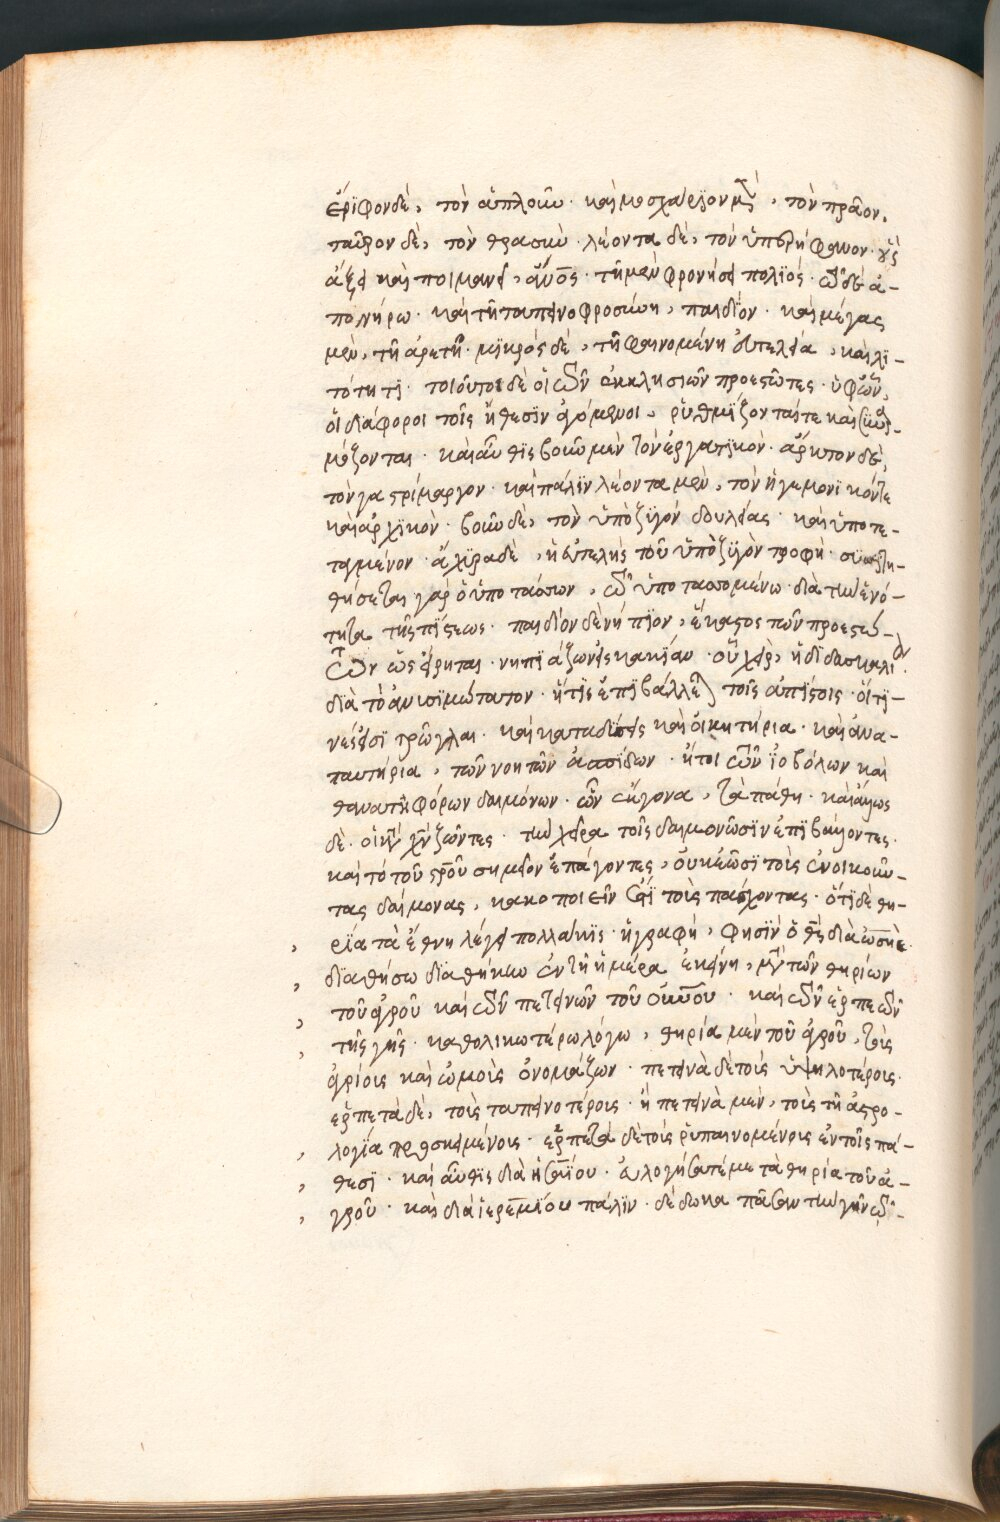 ἔριφον δὲ, τὸν ἁπλοῦν· καὶ μοσχάριον μὲν, τὸν πρᾶον,
ταῦρον δὲ, τὸν θρασὺν· λέοντα δὲ, τὸν ὑπερήφανον· οὓς
ἄξει καὶ ποιμανεῖ, ἄνος· τῇ μὲν φρονήσει πολιός· τῷ δὲ ἀ-
πονήρω· καὶ τῇ ταπεινοφροσύνη, παιδίον· καὶ μέγας
μὲν, τῇ ἀρετῇ· μικρὸς δὲ, τῇ φαινομένη εὐτελεία, καὶ λι-
τότητι· τοιοῦτοι δὲ οἱ τῶν ἐκκλησιῶν προεστῶτες· ὑφ' ὧν,
οἱ διάφοροι τοῖς ἤθεσιν ἀγόμενοι, ῥυθμίζονταί τε καὶ συναρ-
μόζονται· καὶ αὖθις βοῦν μὲν τὸν ἐργατικὸν· ἄρκτον δὲ,
τὸν γαστρίμαργον· καὶ πάλιν λέοντα μὲν, τὸν ἡγεμονικόν τε
καὶ ἀρχικὸν· βοῦν δὲ, τὸν ὑπὸ ζυγόν δουλείας· καὶ ὑποτε-
ταγμένον· ἄχυρα δὲ, ἡ εὐτελὴς τοῦ ὑπὸ ζυγὸν τροφὴ·
θήσεται γὰρ ὁ ὑποτάσσων, τῷ ὑποτασσομένω διὰ τὴν ἑνό-
τητα τῆς πίστεως· παιδίον δὲ νήπιον, ἕκαστος τῶν προεστώ-
των ὡς εἴρηται· νηπιάζων εἰς κακίαν· οὗ χεὶρ, ἡ διδασκαλία
διὰ τὸ ἀνυσιμώτατον· ἥτις ἐπιβάλλεται τοῖς ἀπίστοις· οἵτι-
νές εἰσι τρῶγλαι· καὶ καταδύσεις καὶ οἰκητήρια· καὶ ἀνα-
παυτήρια, τῶν νοητῶν ἀσπίδων· ἤτοι τῶν ἰοβόλων καὶ
θανατηφόρων δαιμόνων· ὧν ἔκγονα, τὰ πάθη· καὶ ἄλλως
δὲ· οἱ κατὰ χν ζῶντες· τὴν χεῖρα τοῖς δαιμονῶσιν ἐπιβάλλοντες·
καὶ τὸ τοῦ στροῦ σημεῖον ἐπάγοντες, οὐκ ἐῶσι τοὺς ἐνοικοῦν-
τας δαίμονας, κακοποιεῖν ἔτι τοὺς πάσχοντας· ὅτι δὲ θη-
ρία τὰ ἔθνη λέγει πολλάκις· ἡ γραφὴ, φησὶν ὁ θς διὰ ὡσηὲ·
διαθήσω διαθήκην ἐν τῇ ἡμέρα ἐκείνη, μετὰ τῶν θηρίων
τοῦ ἀγροῦ καὶ τῶν πετεινῶν τοῦ οὐνοῦ· καὶ τῶν ἑρπετῶν
τῆς γῆς· καθολικωτέρω λόγω, θηρία μὲν τοῦ ἀγροῦ, τοὺς
ἀγρίους καὶ ὠμοὺς ὀνομάζων· πετεινὰ δὲ τοὺς ὑψηλοτέρους·
ἑρπετὰ δὲ, τοὺς ταπεινοτέρους· ἢ πετεινὰ μὲν, τοὺς τῇ ἀστρο-
λογία προσκειμένους· ἑρπετὰ δὲ τοὺς ῥυπαινομένους ἐν τοῖς πά-
θεσι· καὶ αὖθις διὰ ἡσαΐου· εὐλογήσατέ με τὰ θηρία τοῦ ἀ-
γροῦ· καὶ διὰ ἱερεμίου πάλιν· δέδωκα πᾶσαν τὴν γῆν τῷ